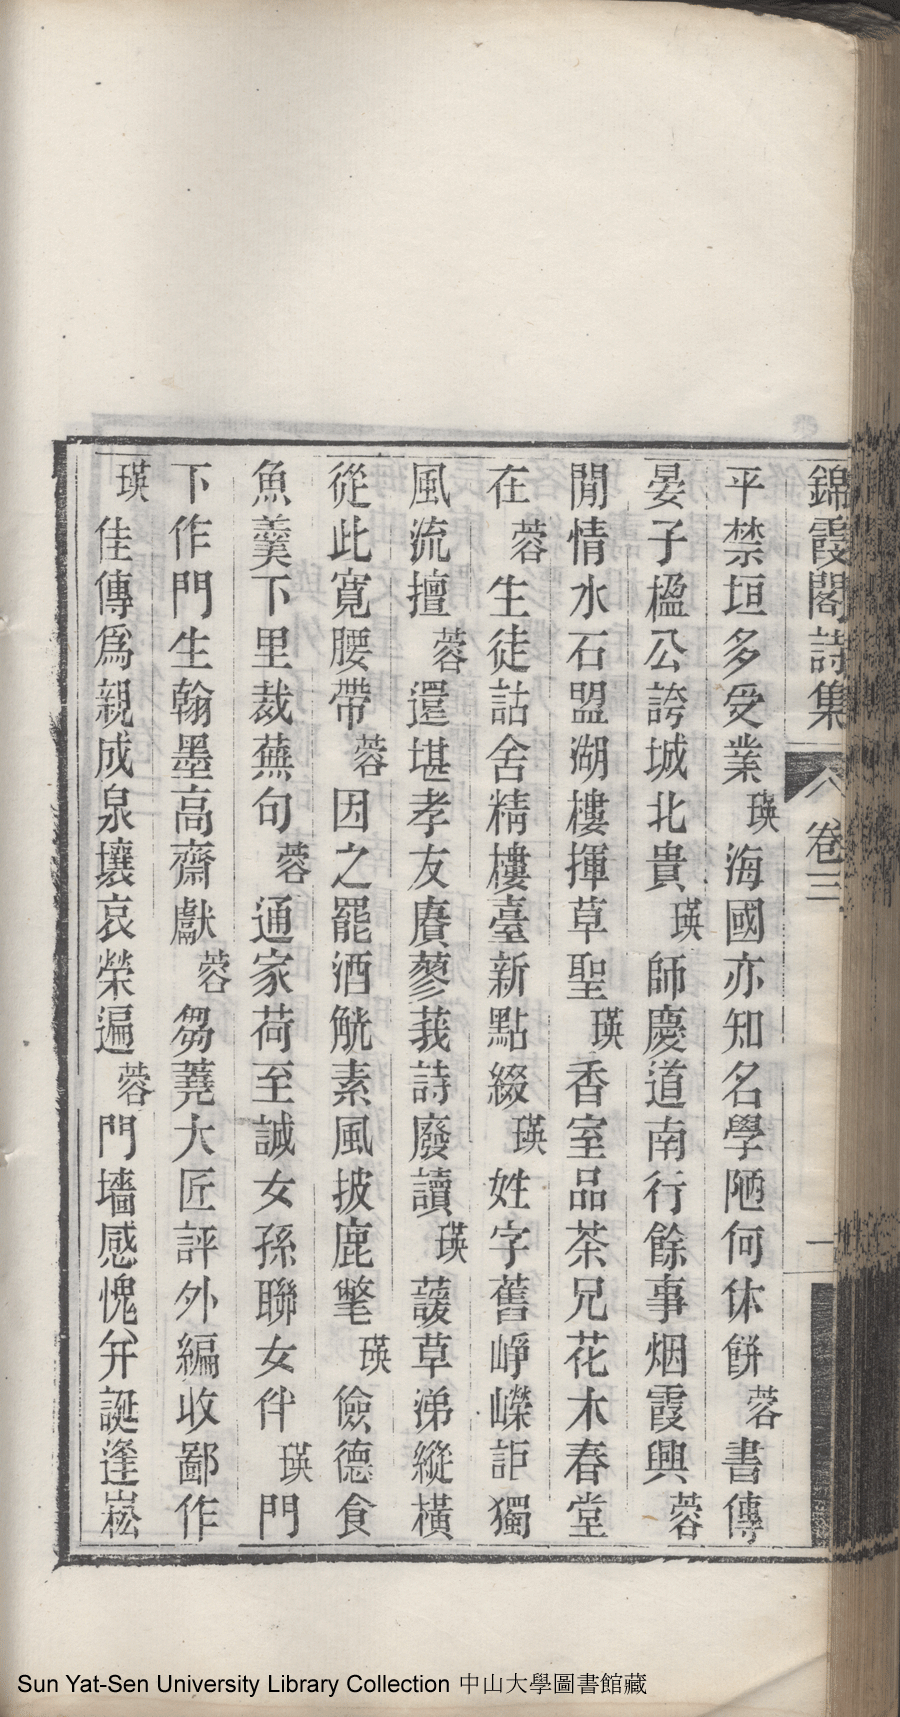 錦霞閣詩集 卷三 一
平禁垣多受業瑛海國亦知名學陋何休餅蓉書傳
晏子楹公誇城北貴瑛師慶道南行餘事烟霞興蓉
閒情水石盟湖樓揮草聖瑛香室品茶兄花木春堂
在蓉生徒詁舍精樓臺新點綴瑛姓字舊崢嶸詎獨
風流擅蓉還堪孝友賡蓼莪詩廢讀瑛蘐草涕縱橫
從此寬腰帶蓉因之罷酒觥素風披鹿氅瑛儉德食
魚羹下里裁蕪句蓉通家荷至誠女孫聯女伴瑛門
下作門生翰墨高齋獻蓉芻蕘大匠評外編收鄙作
瑛佳傳爲親成泉壤哀榮遍蓉門墻感愧并誕逢崧
Sun Yat-Sen University Library Collection 中山大學圖書館藏